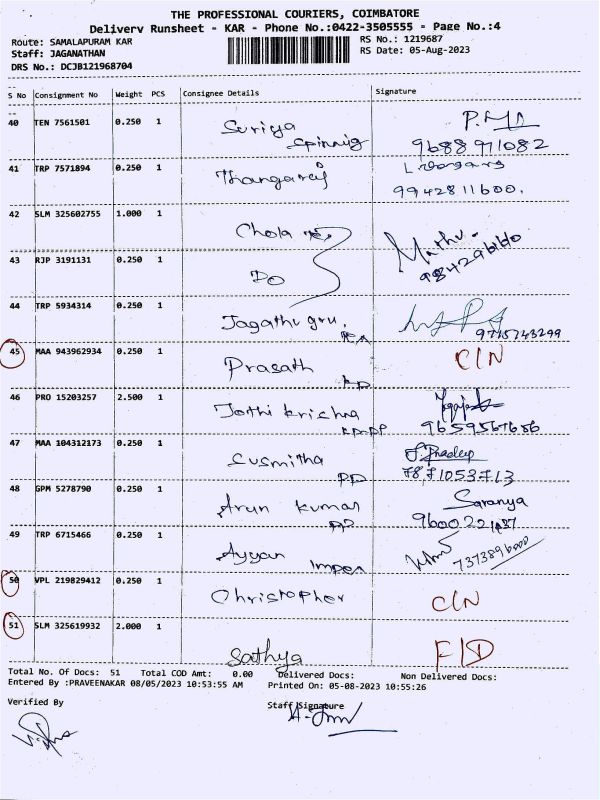 THE PROFESSIONAL COURIERS, COIMBATORE
Delivery Runsheet - KAR - Phone No.:0422-3505555 - Page No.:4
Route: SAMALAPURAM KAR
RS No.: 1219687
Staff: JAGANATHAN
RS Date: 05-Aug-2023
DRS No.: DCJB121968704
S No Consignment No Weight PCS Consignee Details Signature
40 TEN 7561501 0.250 1 Suriya Spinnig
9688971082
41 TRP 7571894 0.250 1 Thangaraj
9942811600.
42 SLM 325602755 1.000 1 Chola
Mathu
43 RJP 3191131 0.250 1 DO
44 TRP 5934314 0.250 1 Jagathi guru.
9715743299
45 MAA 943962934 0.250 1 Prasath
C/N
46 PRO 15203257 2.500 1 Jothi krishna
9659567686
47 MAA 104312173 0.250 1 Susmitha
J.Pradeep
48 GPM 5278790 0.250 1 Arun kumar
Saranya
49 TRP 6715466 0.250 1 Ayyan Impex
7373896000
50 VPL 219829412 0.250 1 Christopher
C/N
51 SLM 325619932 2.000 1 Sathya
F/D
Total No. Of Docs: 51 Total COD Amt: 0.00 Delivered Docs: Non Delivered Docs:
Entered By :PRAVEENAKAR 08/05/2023 10:53:55 AM Printed On: 05-08-2023 10:55:26
Verified By Staff Signature